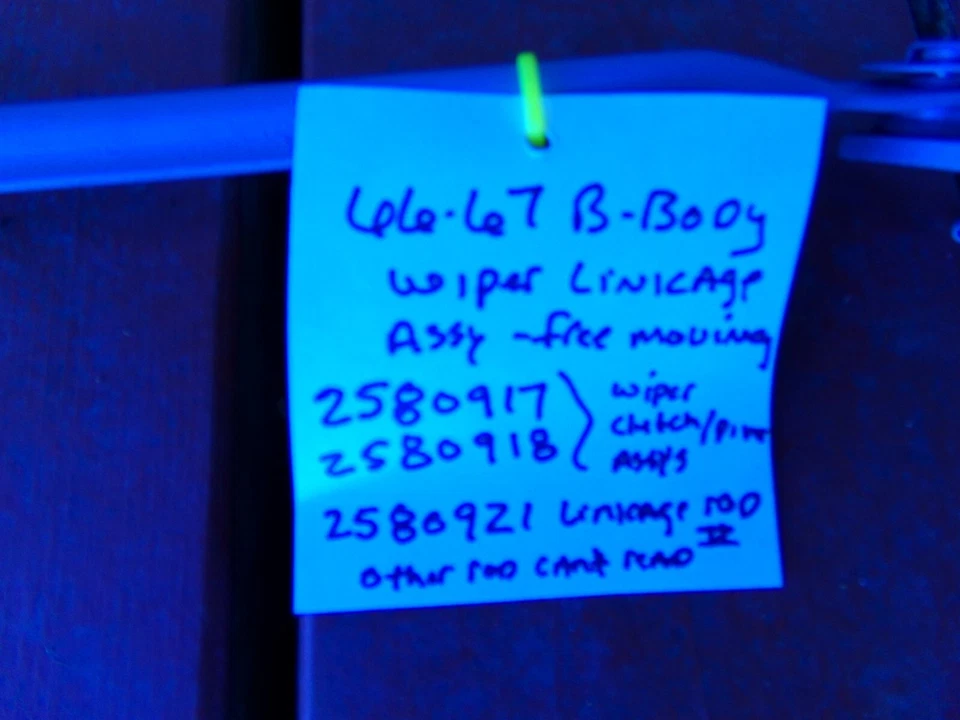 66-67 B-Body
wiper Linkage
Assy - free moving
2580917
2580918
wiper
clutch/pivot
Assy's
2580921 Linkage rod
other rod can't read IZ